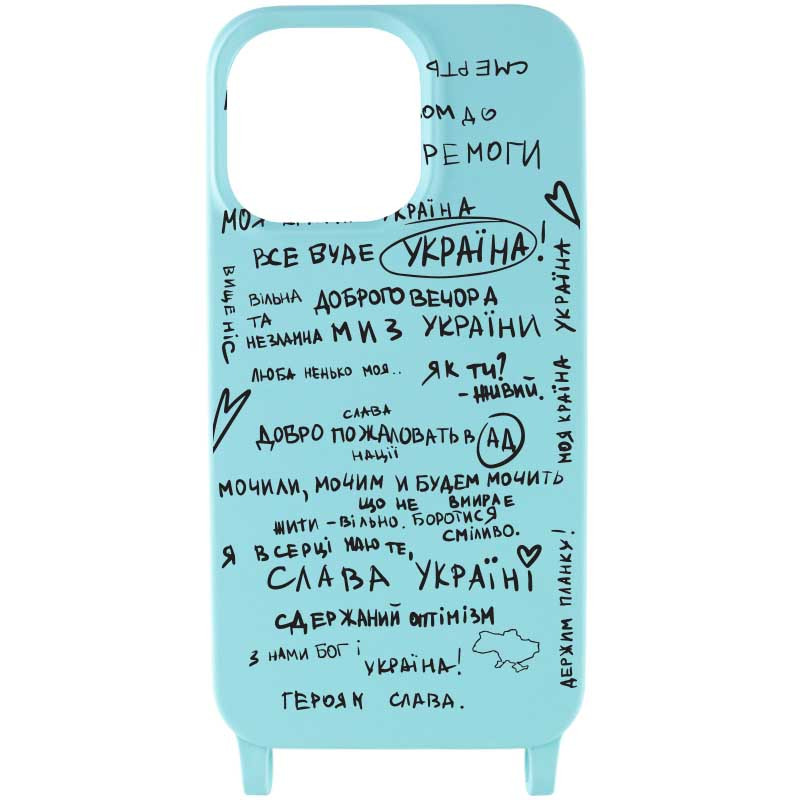 СМЕРТЬ
ОМ ДО
РЕМОГИ
МОЯ КРАЇНА УКРАЇНА
ВСЕ БУДЕ УКРАЇНА!
ВИЩЕ НІС
ВІЛЬНА
ТА
НЕЗЛАМНА
ДОБРОГО ВЕЧОРА
МИ З УКРАЇНИ
ЛЮБА НЕНЬКО МОЯ..
ЯК ТИ?
-ЖИВИЙ.
МОЯ КРАЇНА УКРАЇНА
СЛАВА
ДОБРО ПОЖАЛОВАТЬ В АД
НАЦІЇ
МОЧИЛИ, МОЧИМ И БУДЕМ МОЧИТЬ
ЩО НЕ ВМИРАЕ
ЖИТИ - ВІЛЬНО. БОРОТИСЯ
СМІЛИВО.
Я В СЕРЦІ МАЮ ТЕ,
СЛАВА УКРАЇНІ
ДЕРЖИМ ПЛАНКУ!
СДЕРЖАНИЙ ОПТІМІЗМ
З НАМИ БОГ І
УКРАЇНА!
ГЕРОЯМ СЛАВА.